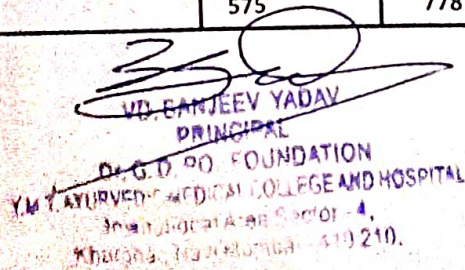 575 778
VD. SANJEEV YADAV
PRINCIPAL
Dr. G. D. FOUNDATION
Y.M.T. AYURVEDIC MEDICAL COLLEGE AND HOSPITAL
Institutional Area Sector - 4,
Kharghar, Navi Mumbai - 410 210.